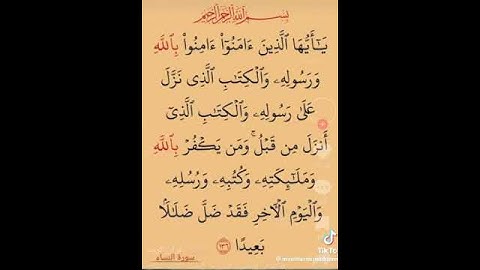 بِسْمِ ٱللَّهِ ٱلرَّحْمَٰنِ ٱلرَّحِيمِ
يَـٰٓأَيُّهَا ٱلَّذِينَ ءَامَنُوٓا۟ ءَامِنُوا۟ بِٱللَّهِ
وَرَسُولِهِۦ وَٱلْكِتَـٰبِ ٱلَّذِى نَزَّلَ
عَلَىٰ رَسُولِهِۦ وَٱلْكِتَـٰبِ ٱلَّذِىٓ
أَنزَلَ مِن قَبْلُ ۚ وَمَن يَكْفُرْ بِٱللَّهِ
وَمَلَـٰٓئِكَتِهِۦ وَكُتُبِهِۦ وَرُسُلِهِۦ
وَٱلْيَوْمِ ٱلْـَٔاخِرِ فَقَدْ ضَلَّ ضَلَـٰلًۢا
بَعِيدًا ١٣٦
سورة النساء